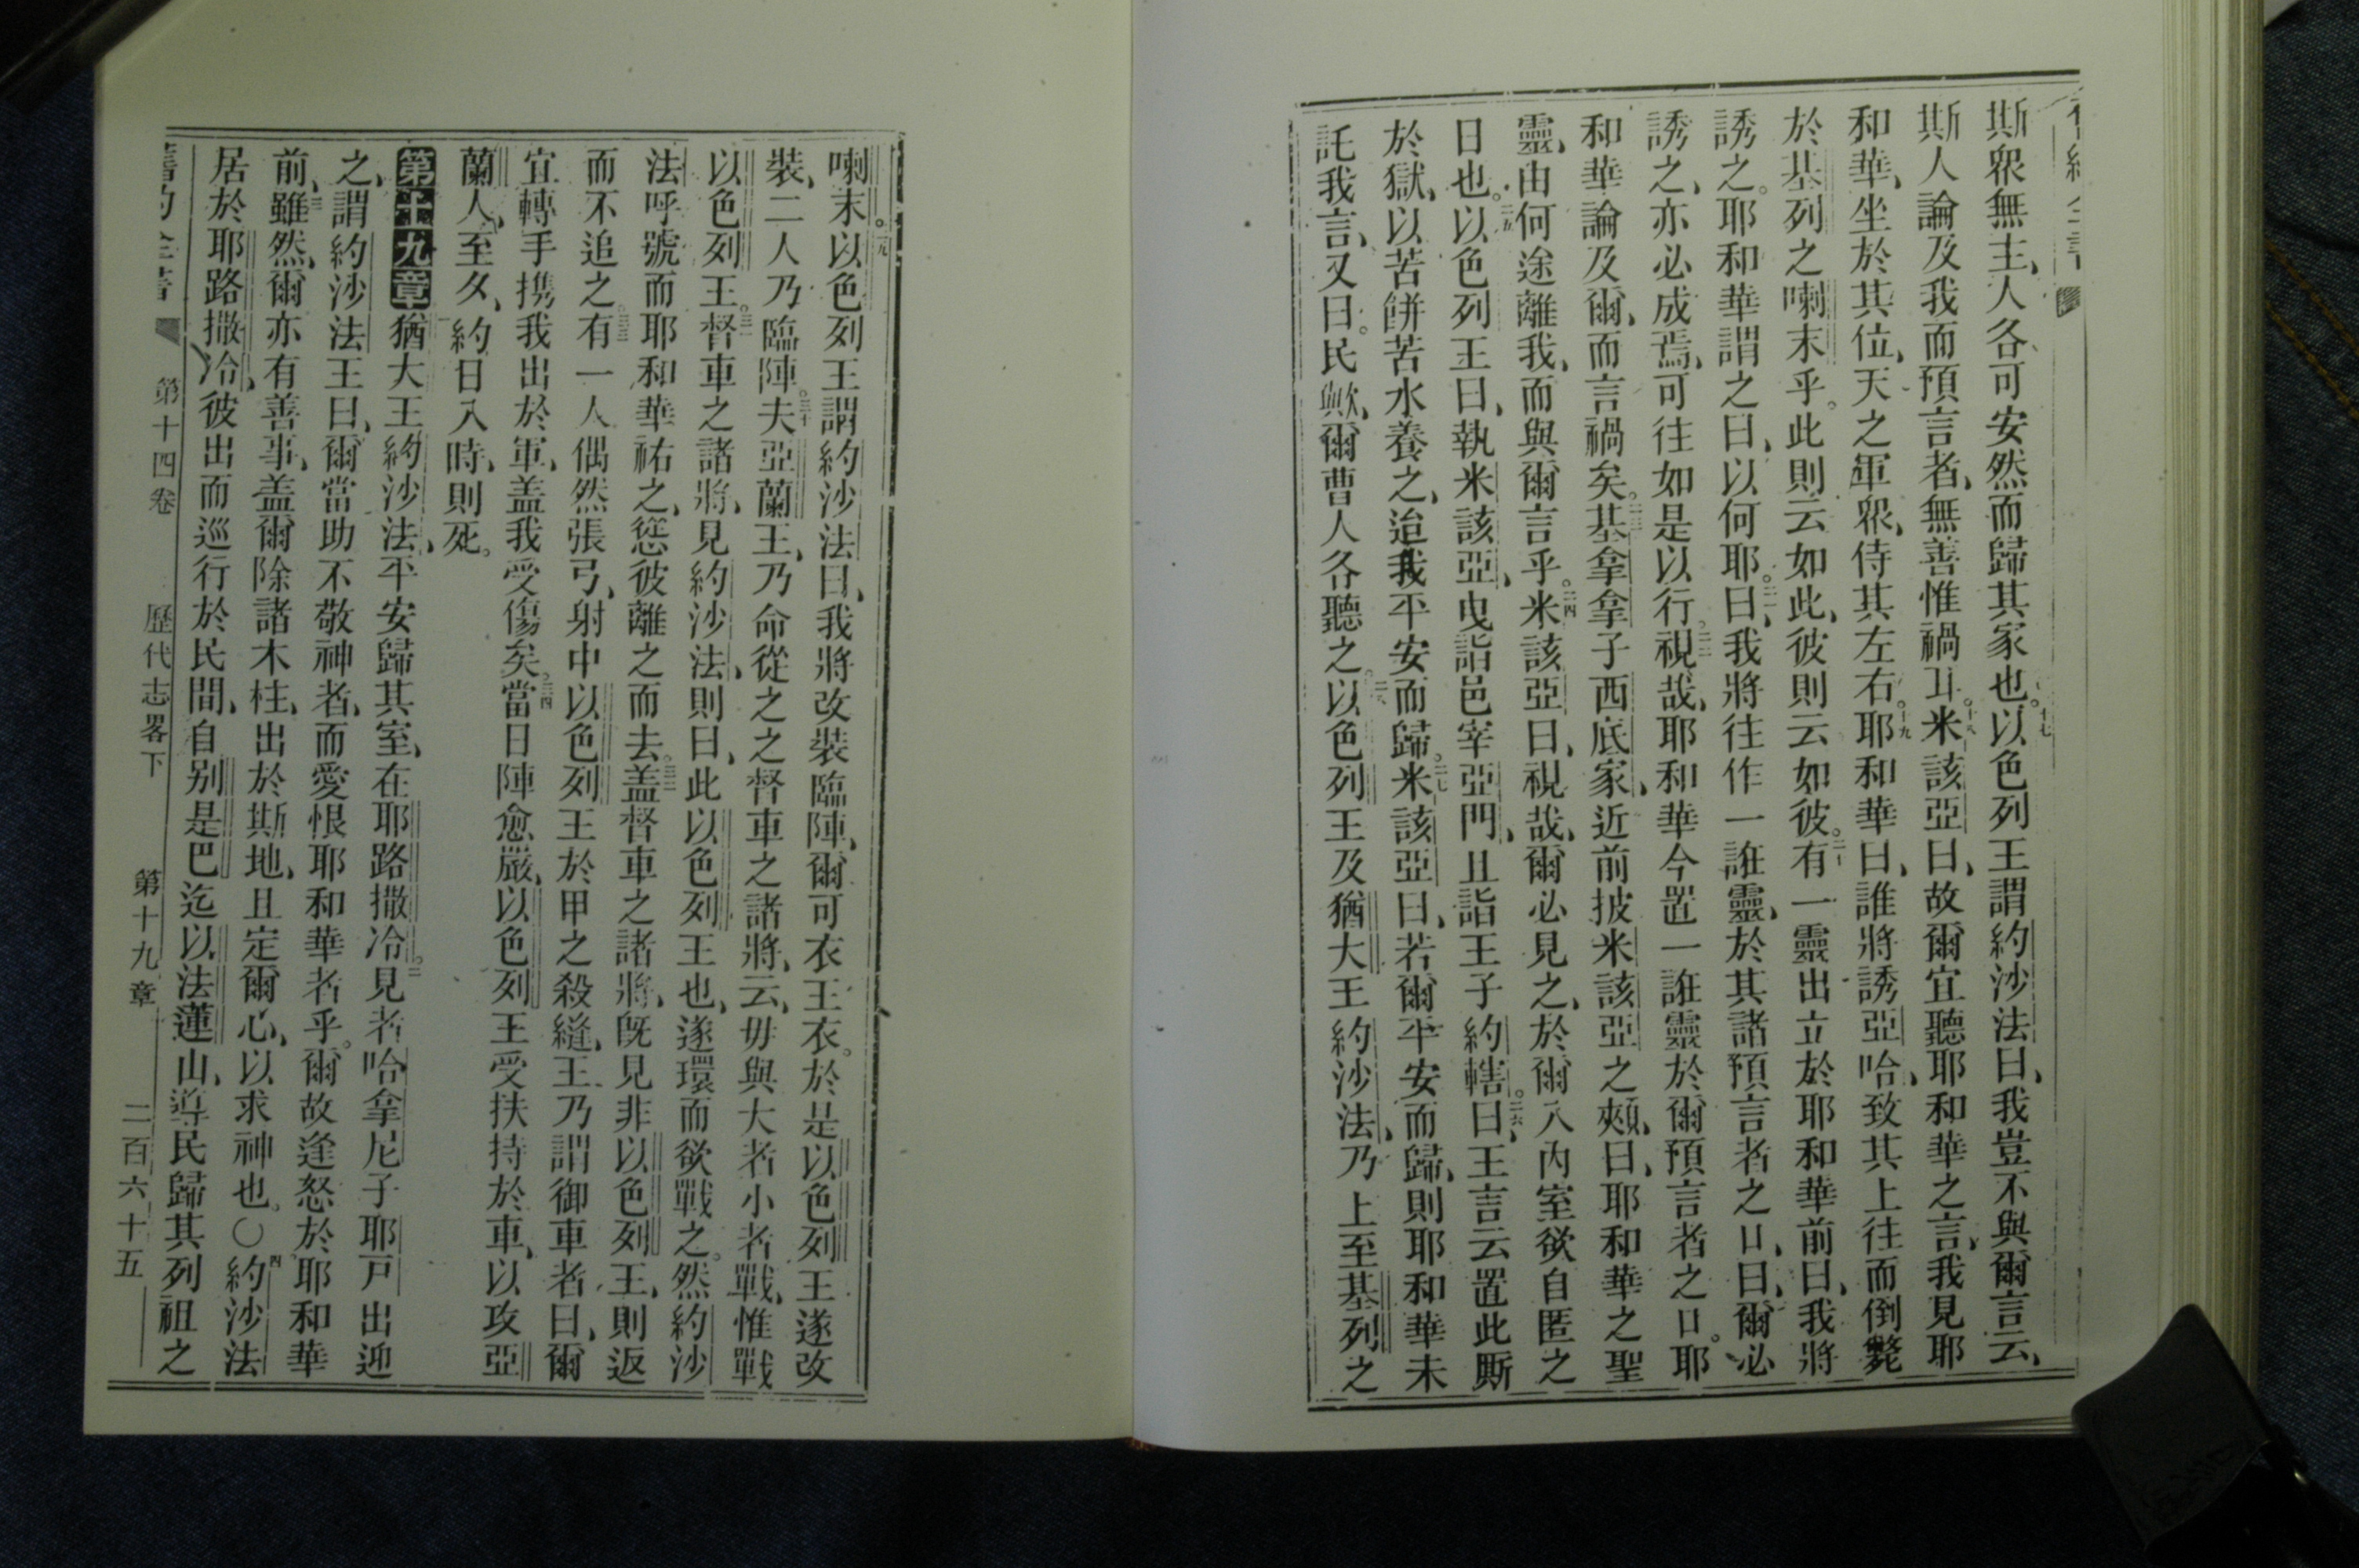 斯衆無主、人各可安然而歸其家也。十七以色列王謂約沙法曰、我豈不與爾言云、
斯人論及我而預言者、無善惟禍耳。十八米該亞曰、故爾宜聽耶和華之言、我見耶
和華、坐於其位、天之軍衆、侍其左右。十九耶和華曰、誰將誘亞哈、致其上往而倒斃
於基列之喇末乎。此則云如此、彼則云如彼。二十有一靈出立於耶和華前曰、我將
誘之。耶和華謂之曰、以何耶。二一曰、我將往作一誑靈、於其諸預言者之口、曰、爾必
誘之、亦必成焉、可往如是以行。二二視哉、耶和華今置一誑靈於爾預言者之口。耶
和華論及爾、而言禍矣。二三基拿拿子西底家、近前披米該亞之頰、曰、耶和華之聖
靈、由何途離我、而與爾言乎。二四米該亞曰、視哉、爾必見之、於爾入內室欲自匿之
日也。二五以色列王曰、執米該亞、曳詣邑宰亞門、且詣王子約轄。二六曰、王言云置此厮
於獄、以苦餅苦水養之、迨我平安而歸。二七米該亞曰、若爾平安而歸、則耶和華未
託我言、又曰。民歟、爾曹人各聽之。二八以色列王及猶大王約沙法、乃上至基列之
喇末。二九以色列王謂約沙法曰、我將改裝臨陣、爾可衣王衣。於是以色列王遂改
裝、二人乃臨陣。三十夫亞蘭王、乃命從之之督車之諸將、云、毋與大者小者戰、惟戰
以色列王。三一督車之諸將、見約沙法、則曰、此以色列王也、遂環而欲戰之。然約沙
法呼號而耶和華祐之、慫彼離之而去。三二盖督車之諸將、旣見非以色列王、則返
而不追之。三三有一人偶然張弓、射中以色列王於甲之殺縫、王乃謂御車者曰、爾
宜轉手携我出於軍、盖我受傷矣。三四當日陣愈嚴、以色列王受扶持於車、以攻亞
蘭人、至夂、約日入時、則死。
第十九章 猶大王約沙法、平安歸其室、在耶路撒冷。二見者哈拿尼子耶戸出迎
之、謂約沙法王曰、爾當助不敬神者、而愛恨耶和華者乎。爾故逢怒於耶和華
前、三雖然、爾亦有善事、盖爾除諸木柱、出於斯地、且定爾心、以求神也。〇四約沙法
居於耶路撒冷、彼出而巡行於民間、自别是巴迄以法蓮山、導民歸其列祖之
第十四卷 歷代志畧下 第十九章 二百六十五